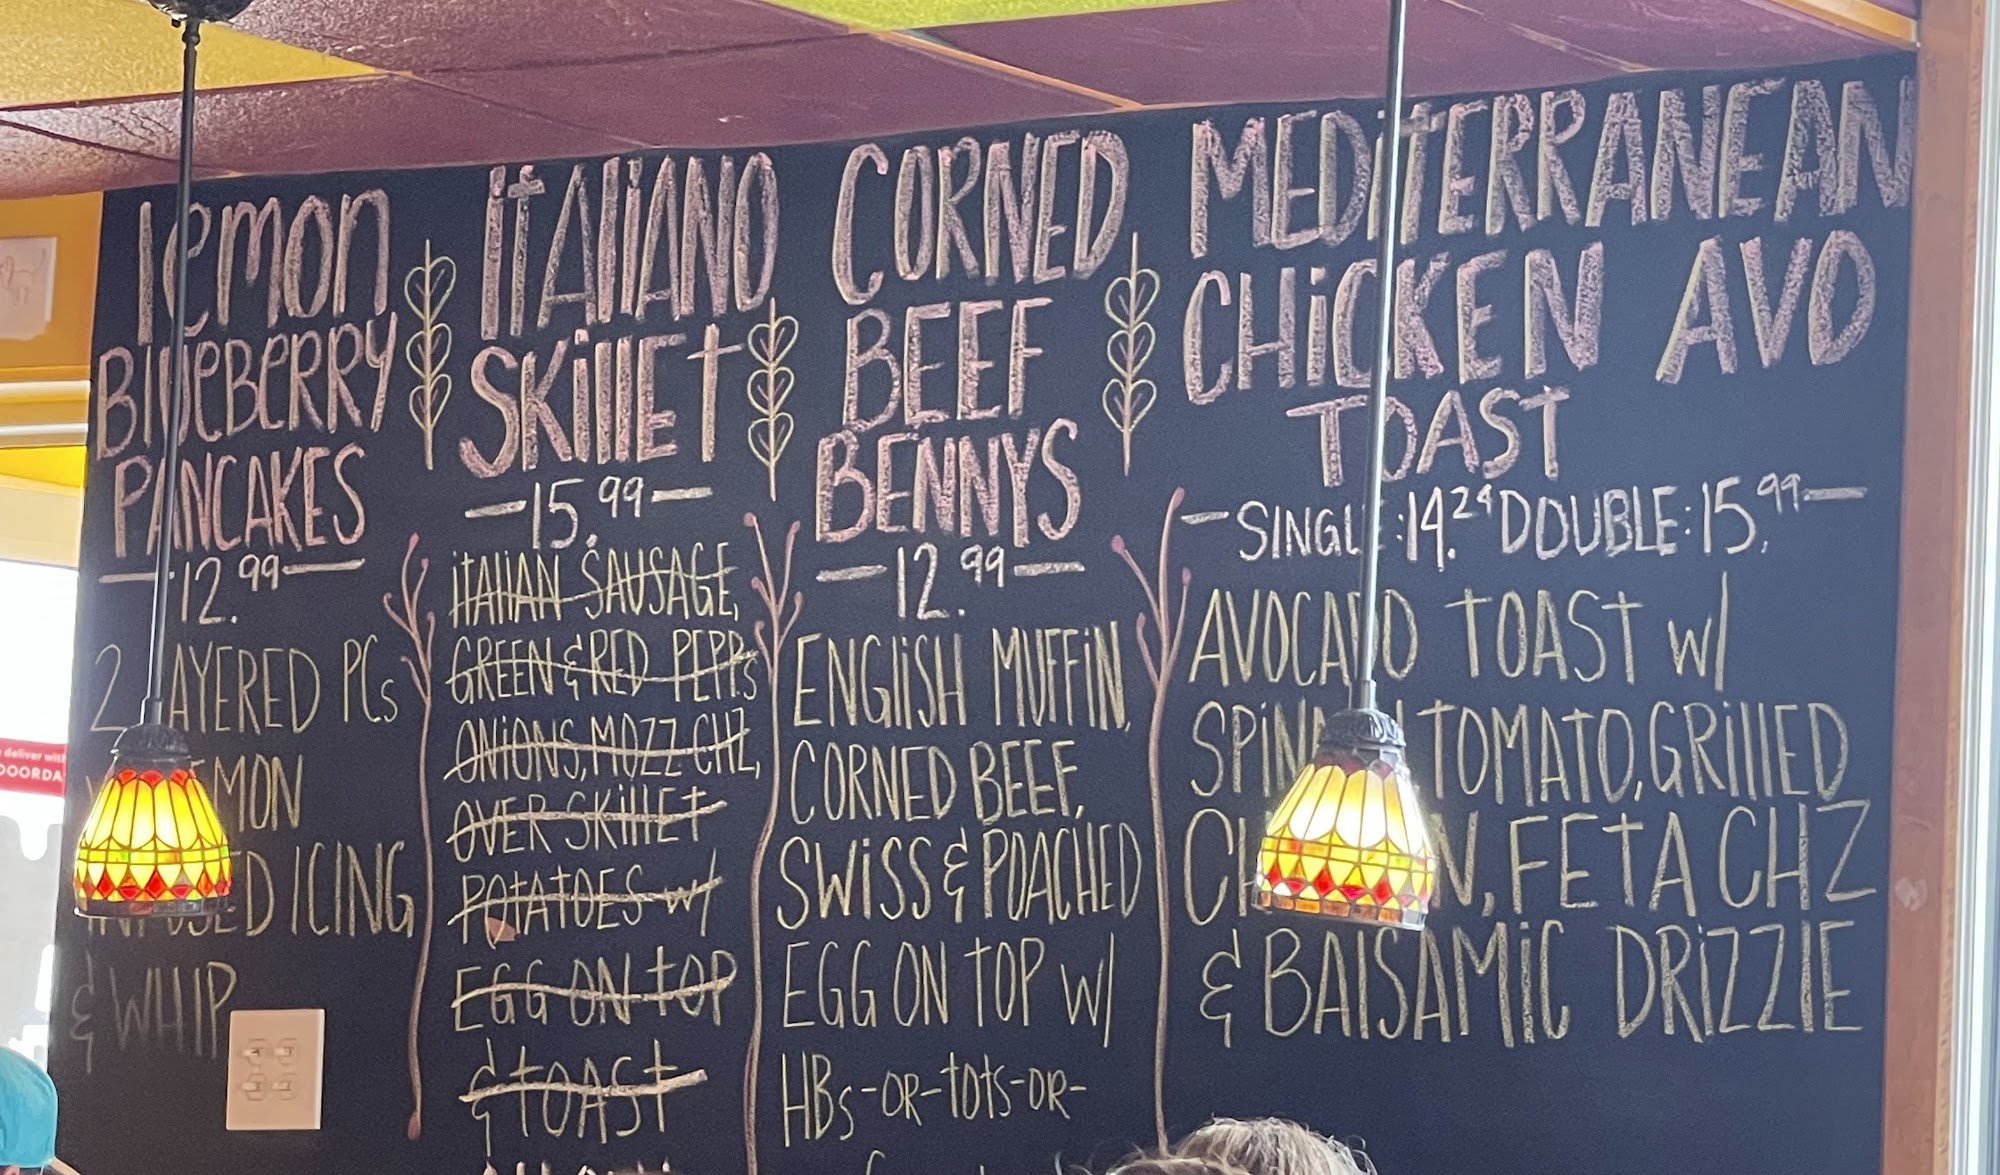 lemon
BlUeBERRY
PANCAKES
12.99
2 LAYERED PCs
LEMON
INFUSED ICING
& WHIP
iTAlIANO
SKillET
15.99
iTAlIAN SAUSAGE,
GREEN & RED PEPPs
ONiONS, MOZZ CHZ,
OVER SKillET
POTATOES w/
EGG ON TOP
& TOAST
CORNED
BEEF
BENNYS
12.99
ENGlISH MUFFiN,
CORNED BEEF,
SWiSS & POACHED
EGG ON TOP w/
HBs-OR-tOts-OR-
MEDiTERRANEAN
CHiCKEN AVO
TOAST
SINGLE: 14.24 DOUBLE: 15.99
AVOCADO TOAST w/
SPiNACH TOMATO, GRillED
CHICKEN, FETA CHZ
& BAlSAMiC DRiZZlE
deliver with
DOORDA